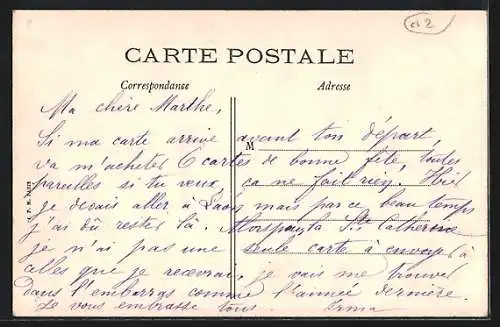 12
CARTE POSTALE
Correspondanse
Adresse
Ma chère Marthe,
Si ma carte arrive avant ton départ,
M
va m'acheter 6 cartes de bonne fête, toutes
pareilles si tu veux, ça ne fait rien. Hier
je devais aller à Laon mais par ce beau temps
j'ai dû rester là. Alors pour la Ste Catherine
je n'ai pas une seule carte à envoyer à
celles que je recevrai, je vais me trouver
dans l'embarras comme l'année dernière.
Je vous embrasse tous. Irma